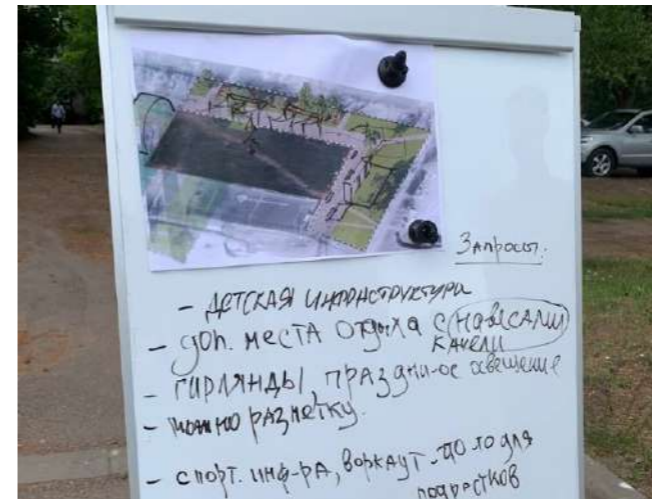 Запросы:
- ДЕТСКАЯ
- доп. места отдыха с навесами
качели
- ГИРЛЯНДЫ, праздни-ое освещение
- можно разметку.
- спорт. инф-ра, воркаут для
подростков